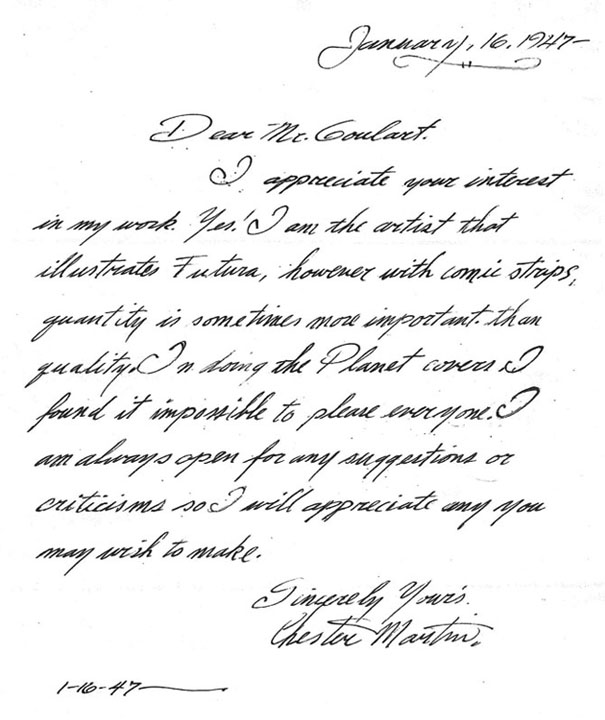 January, 16, 1947-
Dear Mr. Goulart.
I appreciate your interest
in my work. Yes! I am the artist that
illustrates Futura, however with comic strips,
quantity is sometimes more important than
quality. In doing the Planet covers I
found it impossible to please everyone. I
am always open for any suggestions or
criticisms so I will appreciate any you
may wish to make.
Sincerely Your's.
Chester Martin.
1-16-47